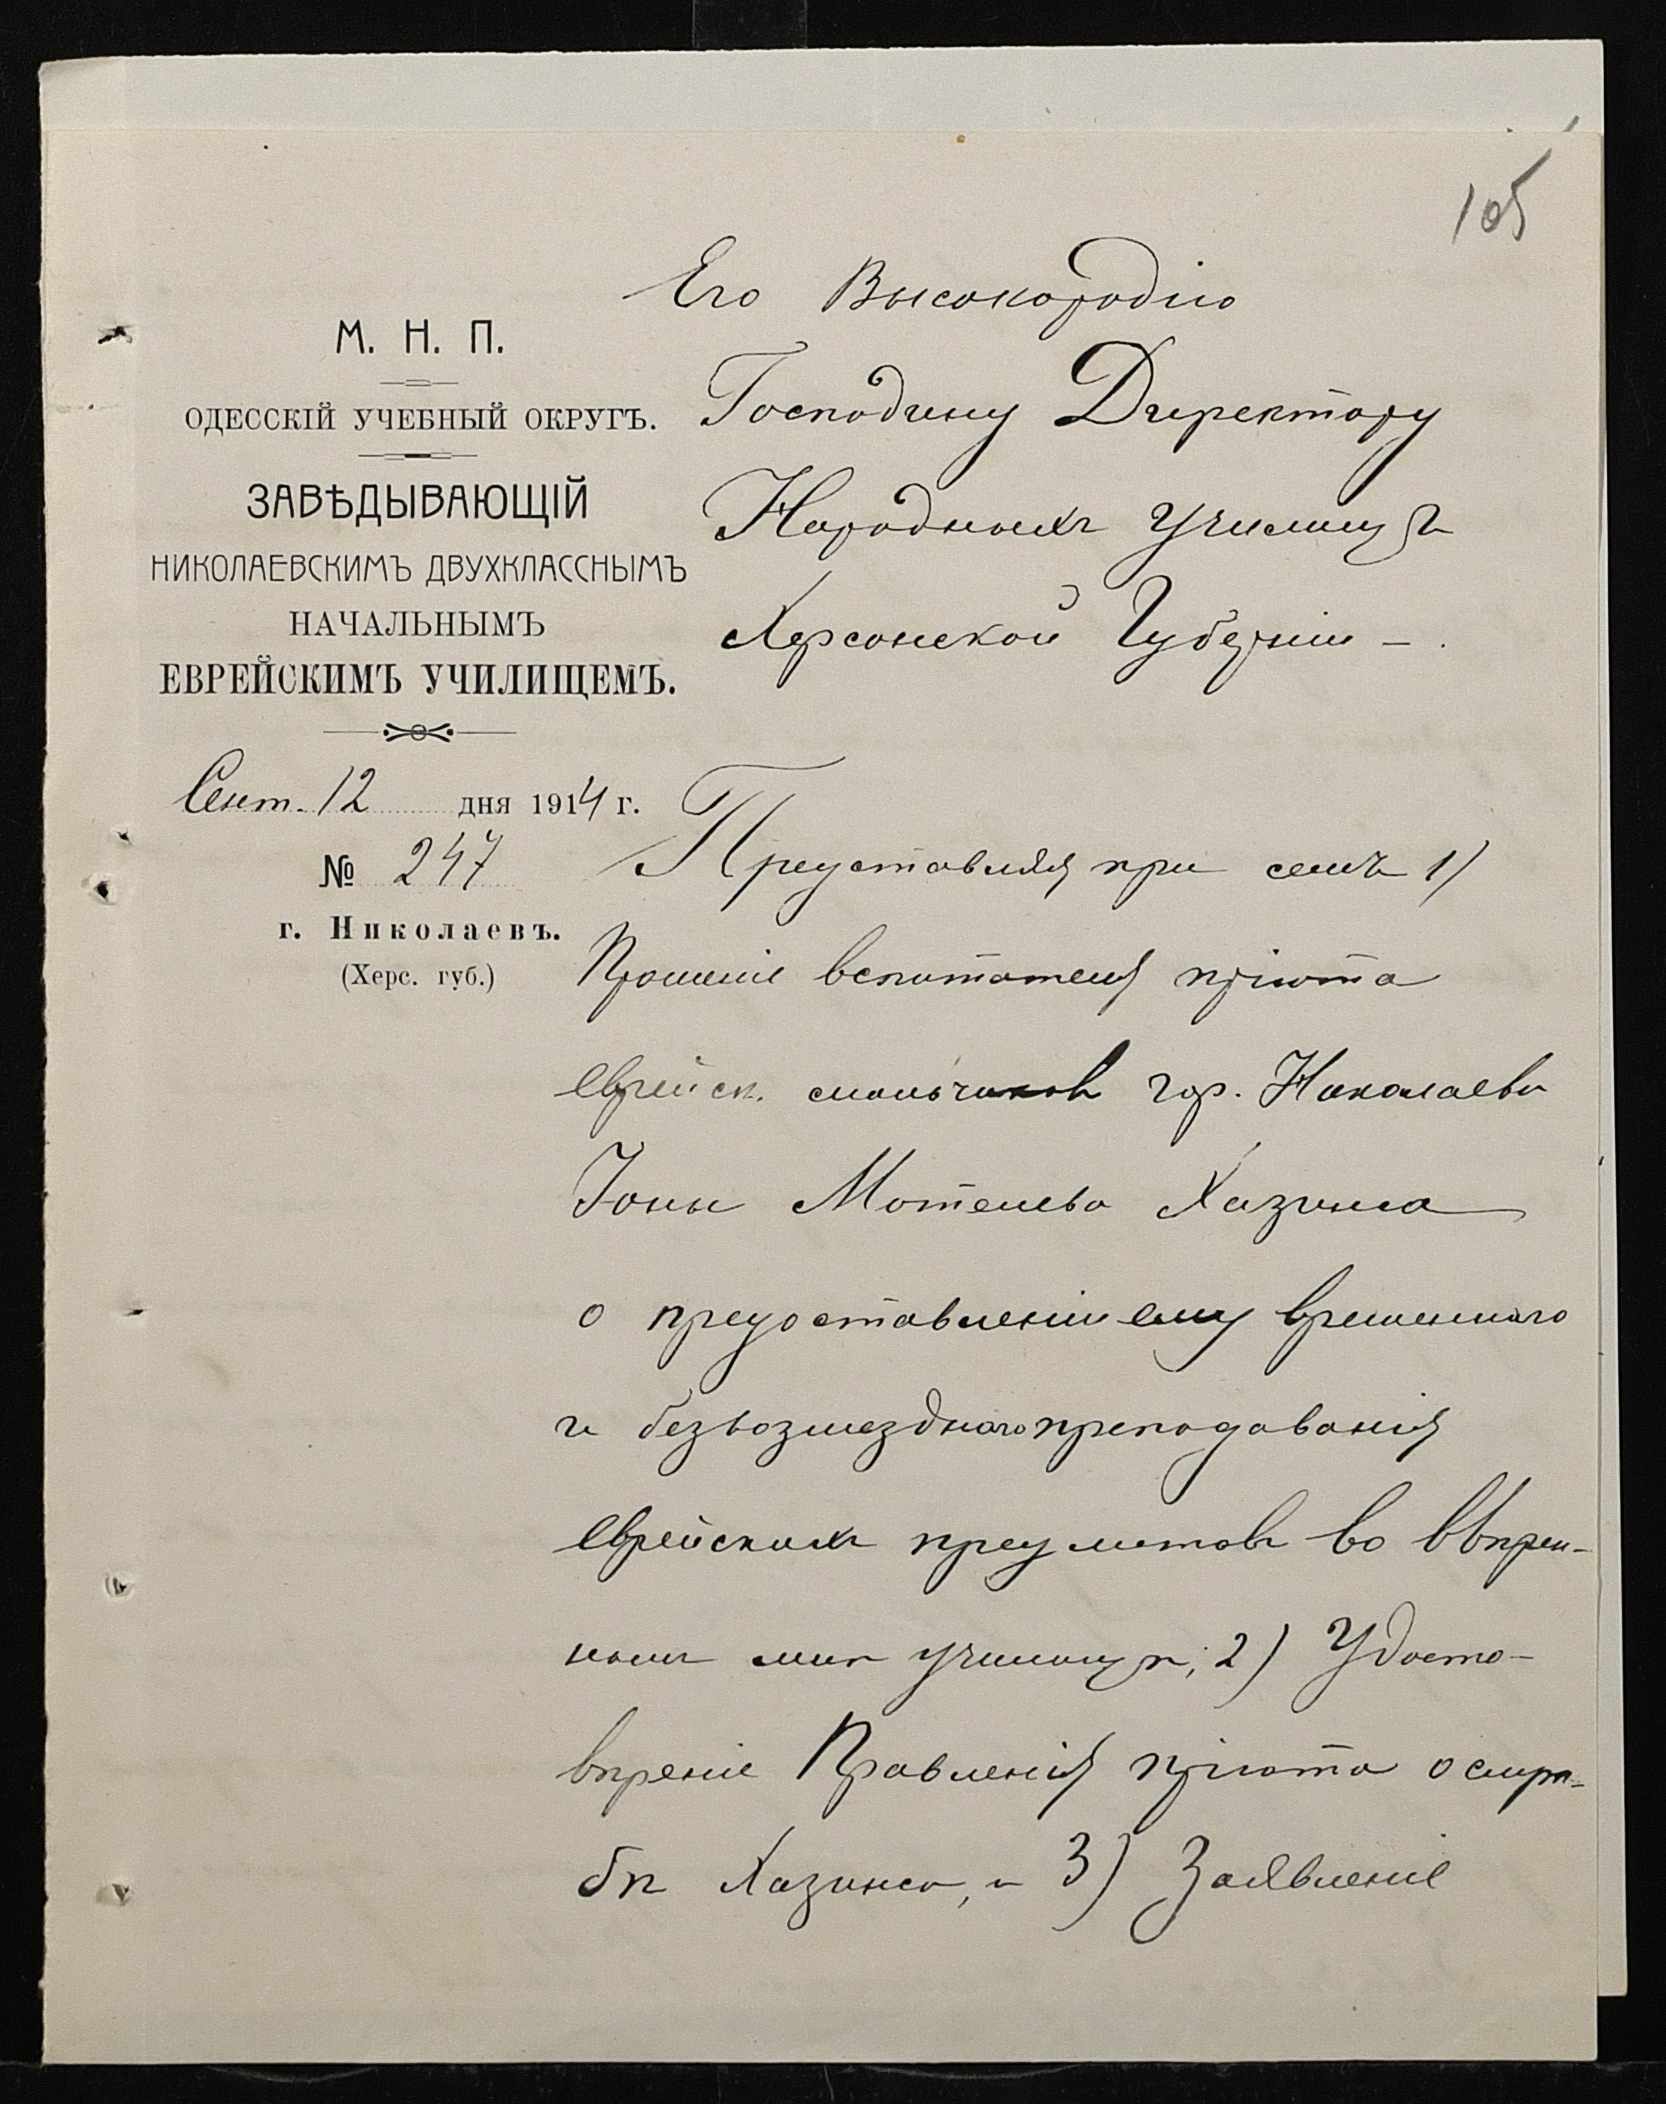 105
М. Н. П.
ОДЕССКІЙ УЧЕБНЫЙ ОКРУГЪ.
ЗАВѢДЫВАЮЩІЙ
НИКОЛАЕВСКИМЪ ДВУХКЛАССНЫМЪ
НАЧАЛЬНЫМЪ
ЕВРЕЙСКИМЪ УЧИЛИЩЕМЪ.
Сент. 12 дня 1914 г.
№ 247
г. Николаевъ.
(Херс. губ.)
Его Высокородію
Господину Директору
Народныхъ Училищъ
Херсонской Губерніи –.
Представляя при семъ 1)
Прошеніе воспитателя пріюта
еврейск. мальчиковъ гор. Николаева
Іоны Мотелева Хазина
о предоставленіи ему временнаго
и безвозмезднаго преподаванія
еврейскихъ предметовъ во ввѣрен-
номъ мнѣ училищѣ; 2) Удосто-
вѣреніе Правленія пріюта о служ-
бѣ Хазина, и 3) Заявленіе